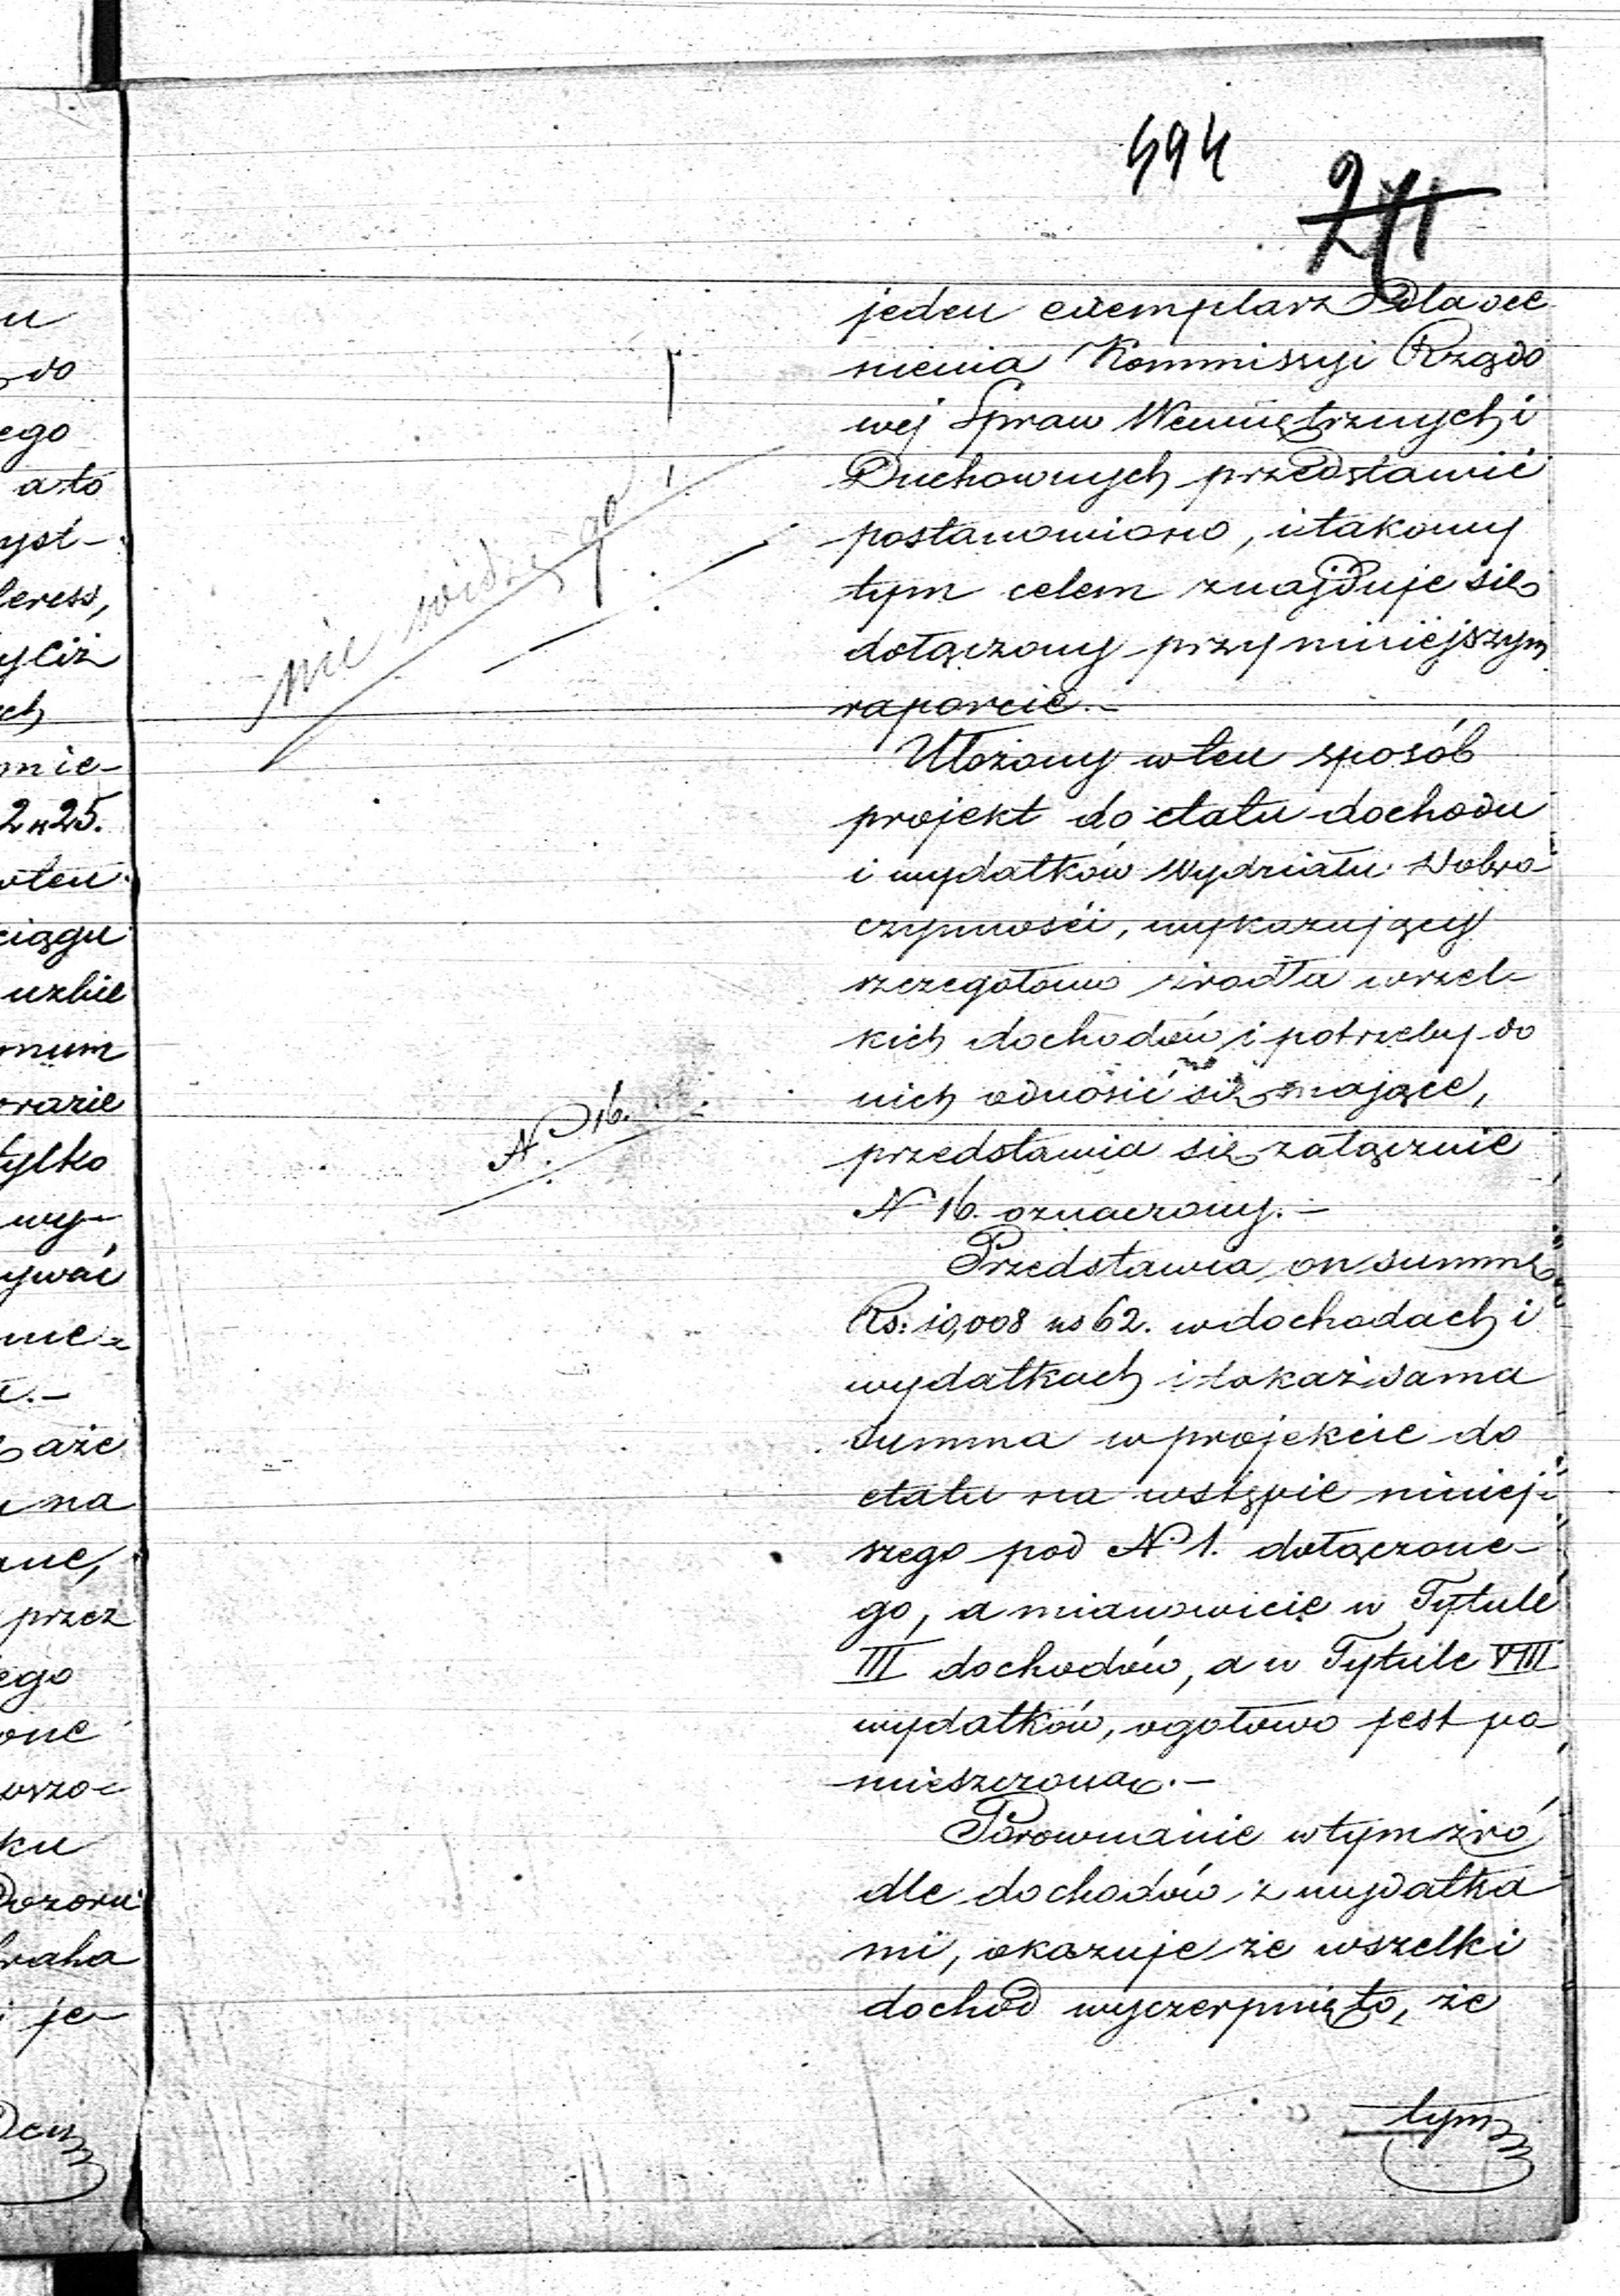 494
271
jeden exemplarz dla oce
nienia Kommissyi Rządo
wej Spraw Wewnętrznych i
Duchownych przedstawić
postanowiono, i takowy
tym celem znajduje się
dołączony przy niniejszym
raporcie.–
nie widzę go
Ułożony w ten sposób
projekt do etatu dochodu
i wydatków Wydziału Dobro
czynności, wykazujący
szczegółowo zrodła wszel-
kich dochodów i potrzeby do
nich odnosić się mające,
przedstawia się załącznie
N 16. oznaczony.–
N 16.
Przedstawia on summę
Rs: 10,008 k 62. w dochodach i
wydatkach i takaż sama
summa w projekcie do
etatu na wstępie niniej-
szego pod N 1. dołączone-
go, a mianowicie w Tytule
III dochodów, a w Tytule VIII
wydatków, ogołowo jest po
mieszczona.–
Porownanie w tym zró
dle dochodów z wydatka
mi, okazuje że wszelki
dochód wyczerpnięto, że
tym
u
do
ego
a to
yst-
teress,
yciż
ch
mie-
2 k 25.
w ten
ciągu
uzbie
onum
orazie
tylko
wy-
ywać
aże
na
przez
ego
one
ku
Dozoru
je-